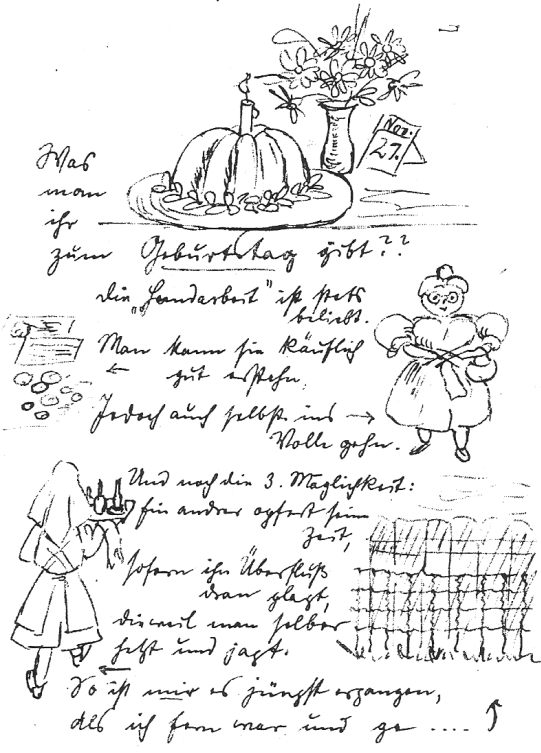 Nov.
27.
Was
man
ihr
zum Geburtstag gibt??
die „Handarbeit" ist stets
beliebt.
Man kann sie käuflich
←
gut erstehn.
Jedoch auch selbst ins →
Volle gehn.
Und noch die 3. Möglichkeit:
Ein andrer opfert seine
Zeit,
sofern ihn Überfluß
dran plagt,
dieweil man selber
hetzt und jagt.
←
So ist mir es jüngst ergangen,
Als ich fern war und ge ....